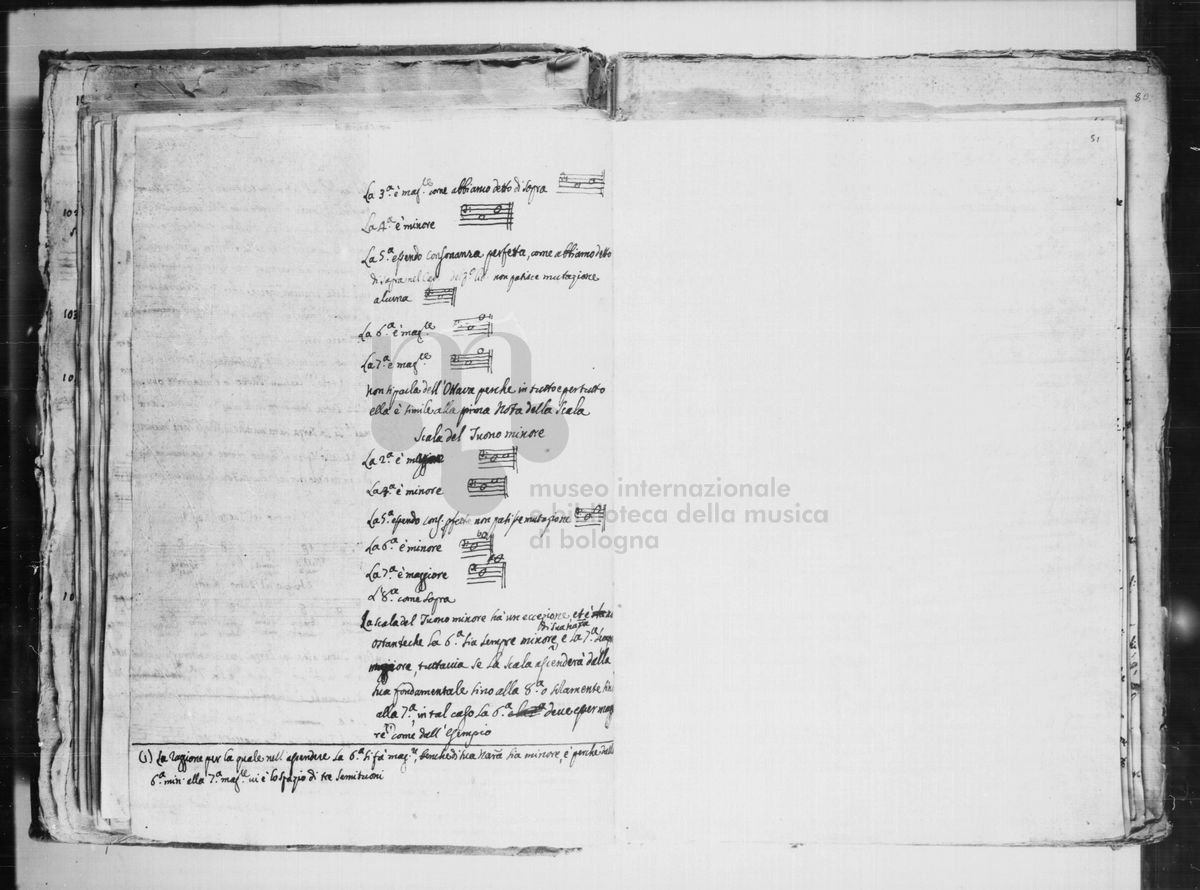 80
51
La 3.ª è mag.re come abbiamo detto di sopra
La 4.ª è minore
La 5.ª essendo consonanza perfetta, come abbiamo detto
di sopra nel non patisce mutazione
alcuna
La 6.ª è mag.re
La 7.ª è mag.re
Non si parla dell'Ottava perche in tutto e per tutto
ella è simile alla prima Nota della Scala
Scala del Tuono minore
La 2.ª è maggiore
La 4.ª è minore
La 5.ª essendo cons. pfetta non patisse mutazione
La 6.ª è minore
La 7.ª è maggiore
L'8.ª come sopra
La scala del Tuono minore hà un eccezione, et è
di sua natª
ostanteche La 6.ª sia sempre minore e La 7.ª
maggiore, tuttavia se La scala ascenderà dalla
sua fondamentale sino alla 8.ª o solamente sin
alla 7.ª, in tal caso La 6.ª deve esser mag
re (1) come dall'Esempio
(1) La raggione per la quale nell'ascendere La 6.ª si fà mag.re, benche di sua natª sia minore, è perche dalla
6.ª min. alla 7.ª mag.re vi è lo spazio di tre semituoni
museo internazionale
e biblioteca della musica
di bologna